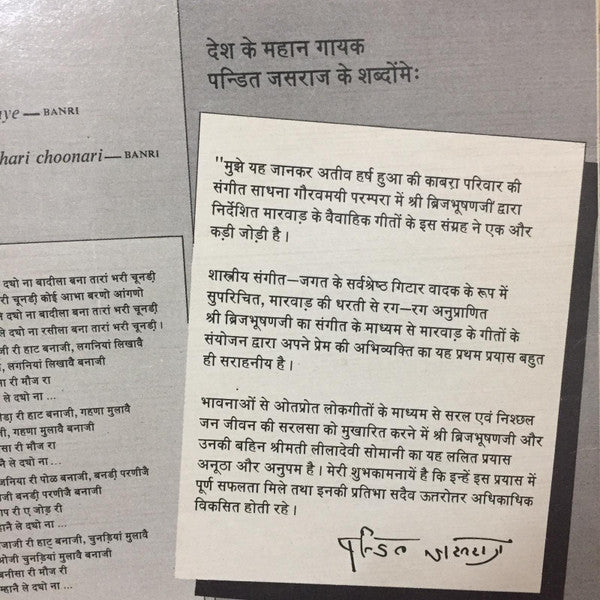 देश के महान गायक
पन्डित जसराज के शब्दोंमे:
ye — BANRI
hari choonari — BANRI
"मुझे यह जानकर अतीव हर्ष हुआ की काबरा परिवार की
संगीत साधना गौरवमयी परम्परा में श्री ब्रिजभूषणजी द्वारा
निर्देशित मारवाड़ के वैवाहिक गीतों के इस संग्रह ने एक और
कड़ी जोड़ी है।
शास्त्रीय संगीत—जगत के सर्वश्रेष्ठ गिटार वादक के रूप में
सुपरिचित, मारवाड़ की धरती से रग—रग अनुप्राणित
श्री ब्रिजभूषणजी का संगीत के माध्यम से मारवाड़ के गीतों के
संयोजन द्वारा अपने प्रेम की अभिव्यक्ति का यह प्रथम प्रयास बहुत
ही सराहनीय है।
भावनाओं से ओतप्रोत लोकगीतों के माध्यम से सरल एवं निश्छल
जन जीवन की सरलसा को मुखारित करने में श्री ब्रिजभूषणजी और
उनकी बहिन श्रीमती लीलादेवी सोमानी का यह ललित प्रयास
अनूठा और अनुपम है। मेरी शुभकामनायें है कि इन्हें इस प्रयास में
पूर्ण सफलता मिले तथा इनकी प्रतिभा सदैव ऊतरोतर अधिकाधिक
विकसित होती रहे।
पन्डित जसराज
दघो ना बादीला बना तारां भरी चूनडी़
री चूनडी़ कोई आभा बरणो आंगणो
ले दघो ना बादीला बना तारां भरी चूनडी़
ले दघो ना रसीला बना तारां भरी चूनडी़।
जी री हाट बनाजी, लगनियां लिखावै
, लगनियां लिखावै बनाजी
सा री मौज रा
ले दघो ना ...
री हाट बनाजी, गहणा मुलावै
जी, गहणा मुलावै बनाजी
सा री मौज रा
ले दघो ना ...
जनिया री पोळ बनाजी, बनडी़ परणीजै
जी बनडी़ परणीजै बनाजी
री ए जोड़ री
ले दघो ना ...
जाजी री हाट बनाजी, चुनड़ियां मुलावै
ओजी चुनड़ियां मुलावै बनाजी
बनीसा री मौज री
म्हानै ले दघो ना ...